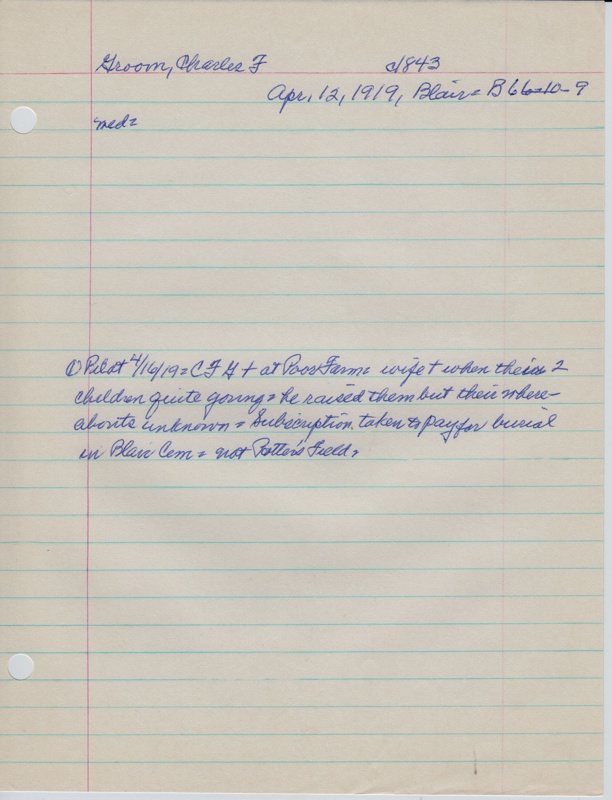 Groom, Charles F c1843
Apr, 12, 1919, Blair = B 66-10-9
med=
① Pilot 4/16/19 = C F G + at Poor Farm = wife + when their 2
children quite young = he raised them but their where-
abouts unknown = Subscription taken to pay for burial
in Blair Cem = not Potter's Field.